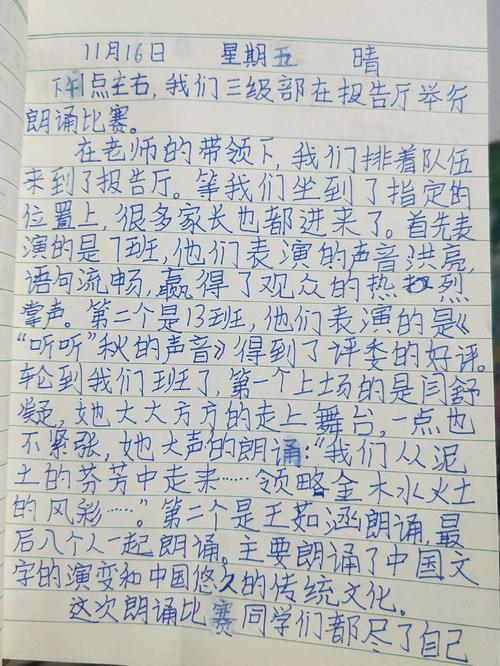 11月16日 星期五 晴
下午1点左右,我们三级部在报告厅举行
朗诵比赛。
在老师的带领下,我们排着队伍
来到了报告厅。等我们坐到了指定的
位置上,很多家长也都进来了。首先表
演的是7班,他们表演的声音洪亮,
语句流畅,赢得了观众的热烈
掌声。第二个是13班,他们表演的是《
“听听”秋的声音》得到了评委的好评。
轮到我们班了,第一个上场的是闫舒
凝,她大大方方的走上舞台,一点也
不紧张,她大声的朗诵:“我们从泥
土的芬芳中走来……领略金木水火土
的风彩……”。第二个是王茹涵朗诵,最
后八个人一起朗诵。主要朗诵了中国文
字的演变和中国悠久的传统文化。
这次朗诵比赛同学们都尽了自己